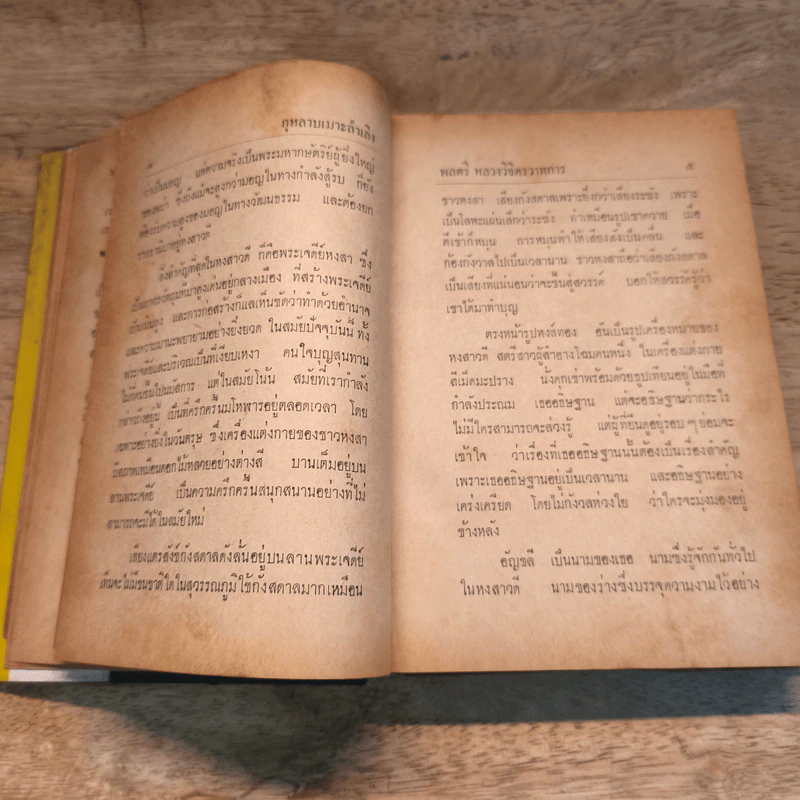 กุหลาบเมาะลำเลิง
๔
ว่าเป็นมอญ แต่ความจริงเป็นพระมหากษัตริย์ผู้ยิ่งใหญ่
ของพะม่า ซึ่งถึงแม้จะสูงกว่ามอญในทางกำลังสู้รบ ก็ยัง
ต้องรับความสูงของมอญในทางวัฒนธรรม และต้องยก
ราชธานีมาอยู่หงสาวดี
สิ่งสำคัญที่สุดในหงสาวดี ก็คือพระเจดีย์หงสา ซึ่ง
เป็นเจดีย์มหึมาสูงเด่นอยู่กลางเมือง ที่สร้างพระเจดีย์
เป็นเนินสูง และการก่อสร้างก็แลเห็นชัดว่าทำด้วยอำนาจ
และความมานะพยายามอย่างยิ่งยวด ในสมัยปัจจุบันนี้ ทั้ง
พระเจดีย์และบริเวณเป็นที่เงียบเหงา คนใจบุญสุนทาน
ไม่ก็คนขึ้นไปนมัสการ แต่ในสมัยโน้น สมัยที่เรากำลัง
กล่าวถึงอยู่นี้ เป็นที่ครึกครื้นมโหฬารอยู่ตลอดเวลา โดย
เฉพาะอย่างยิ่งในวันตรุษ ซึ่งเครื่องแต่งกายของชาวหงสา
มีสภาพเหมือนดอกไม้หลายอย่างต่างสี บานเต็มอยู่บน
ลานพระเจดีย์ เป็นความครึกครื้นสนุกสนานอย่างที่ไม่
สามารถจะมีได้ในสมัยใหม่
เสียงแตรสังข์กังสดาลดังลั่นอยู่บนลานพระเจดีย์
เห็นจะไม่มีชนชาติใดในสุวรรณภูมิใช้กังสดาลมากเหมือน
พลตรี หลวงวิจิตรวาทการ ๕
ชาวหงสา เสียงกังสดาลเพราะยิ่งกว่าเสียงระฆัง เพราะ
เป็นโลหะแผ่นเล็กกว่าระฆัง ทำเหมือนรูปเขาควาย เมื่อ
ตีเข้าก็หมุน การหมุนทำให้เสียงดังเป็นคลื่น และ
ก้องกังวาลไปเป็นเวลานาน ชาวหงสาถือว่าเสียงกังสดาล
เป็นเสียงที่แน่นอนว่าจะขึ้นสู่สวรรค์ บอกให้สวรรค์รู้ว่า
เขาได้มาทำบุญ
ตรงหน้ารูปหงส์ทอง อันเป็นรูปเครื่องหมายของ
หงสาวดี สตรีสาวผู้สำอางโฉมคนหนึ่ง ในเครื่องแต่งกาย
สีเม็ดมะปราง นั่งคุกเข่าพร้อมด้วยธูปเทียนอยู่ในมือที่
กำลังประณม เธออธิษฐาน แต่จะอธิษฐานว่ากระไร
ไม่มีใครสามารถจะล่วงรู้ แต่ผู้ที่ยืนดูอยู่รอบ ๆ ย่อมจะ
เข้าใจ ว่าเรื่องที่เธออธิษฐานนั้นต้องเป็นเรื่องสำคัญ
เพราะเธออธิษฐานอยู่เป็นเวลานาน และอธิษฐานอย่าง
เคร่งเครียด โดยไม่กังวลห่วงใย ว่าใครจะมุ่งมองอยู่
ข้างหลัง
อัญชลี เป็นนามของเธอ นามซึ่งรู้จักกันทั่วไป
ในหงสาวดี นามของร่างซึ่งบรรจุความงามไว้อย่าง